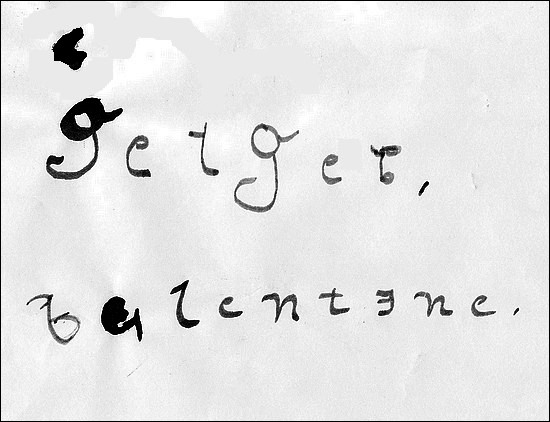 geiger,
valentine.